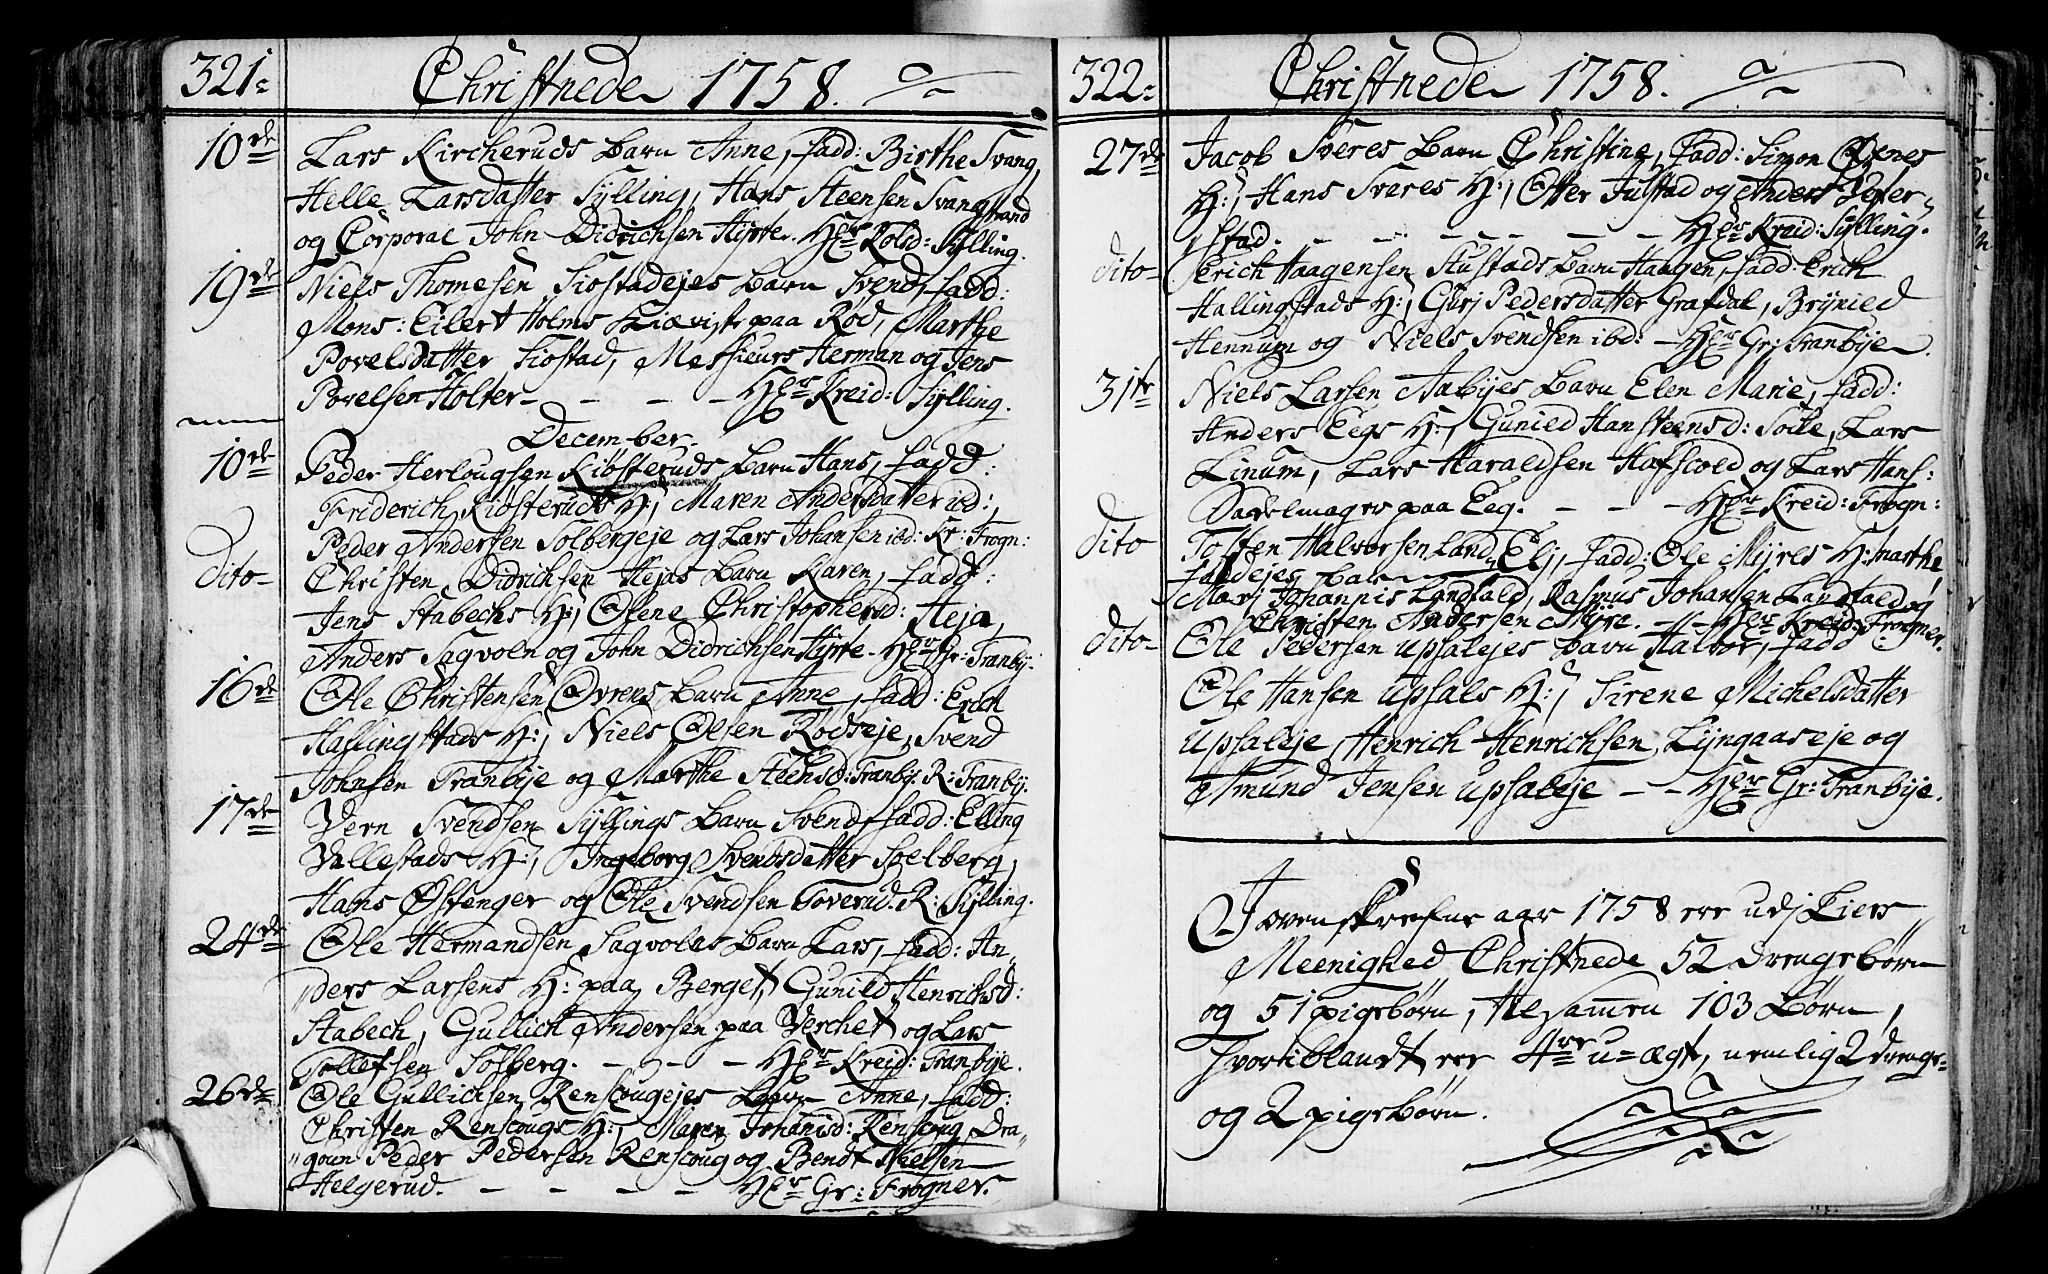 321.
Christnede 1758.
10de Lars Kircheruds barn Anne, fadd: Birthe Svang,
Helle Larsdatter Sylling, Hans Steensen Svangstrand
og Corporal John Didrichsen Hyrte. HEr Rolsd: Sylling.
19de Niels Thomesen Siostadejes barn Svend, fadd:
Mons: Eilert Holms Kiæviste paa Rød, Marthe
Povelsdatter Siostad, Messieurs Herman og Jens
Povelsen Holter - - - - HEr Kreid: Sylling.
December.
10de Peder Herlougsen Kiøsteruds barn Hans, fadd:
Friderich Kiøsteruds H:, Maren Andersdatter ibd:,
Peder Andersen Solbergeje og Lars Johansen ibd: Kr: Frogn:
Dito- Christen Didrichsen Hejas barn Karen, fadd:
Jens Stabechs H:, Olene Christophersd: Heja,
Anders Sagvoln og John Didrichsen Hyrte - HEr Gr: Tranby:
16de Ole Christensen Ovrens barn Anne, fadd: Erich
Hallingstads H:, Niels Olsen Rødseje, Svend
Johnsen Tranbye og Marthe Steensd: Tranby: R: Tranby:
17de Vern Svendsen Syllings barn Svend, fadd: Elling
Vallestads H:, Ingeborg Svendsdatter Soelberg,
Hans Østenger og Ole Svendsen Toverud. R: Sylling.
24de Ole Hermandsen Sagvolns barn Lars, fadd: An-
ders Larsens H: paa Berget, Gunild Henrichsd:
Stabech, Gullich Andersen paa Verchet og Lars
Tollefsen Solberg. - - - - HEr Kreid: Tranbye.
26de Ole Gullichsen Renscougejes barn Anne, fadd:
Christen Renscougs H:, Maren Johanisd: Renscoug, Dra-
goun Peder Pedersen Renscoug og Bendt Neelsen
Helgerud. - - - - HEr Gr: Frogner.
322.
Christnede 1758.
27de Jacob Sveres barn Christine, fadd: Simon Ovnes
H:, Hans Sveres H:, Otter Justad og Anders Peter-
stad. - - - - - - - HEr Kreid: Sylling.
Dito- Erich Haagensen Stustads barn Haagen, fadd: Erich
Hallingstads H:, Guri Pedersdatter Grafdal, Brynied
Hennum og Niels Svendsen ibd: - HEr Gr: Tranbye.
31te Niels Larsen Aabyes barn Elen Marie, fadd:
Anders Eegs H:, Gunied Hansteensd: Solie, Lars
Linum, Lars Haraldsen Hafscold og Lars Hans:
Sadelmager paa Eeg. - - - HEr Kreid: Frogn:
Dito Tosten Halvorsen Land- Eli, fadd: Ole Myres H: Marthe
faldejes barn
Mari Johannis Landfald, Rasmus Johansen Landfald og
Christen Andersen Myre. - - HEr Kreid: Frogner.
Dito- Ole Pedersen Upsalejes barn Halvor, fadd:
Ole Hansen Upsals H:, Sirene Michelsdatter
Upsaleje, Henrich Henrichsen Lyngaaseje og
Amund Jensen Upsaleje - - HEr Gr: Tranbye.
J ovenskrefne aar 1758 ere udj Liers
Meenighed Christnede 52 drengebørn
og 51 pigebørn, tilsamen 103 børn,
hvoriblandt ere 4re u-ægte, nemlig 2 drenge-
og 2 pigebørn.